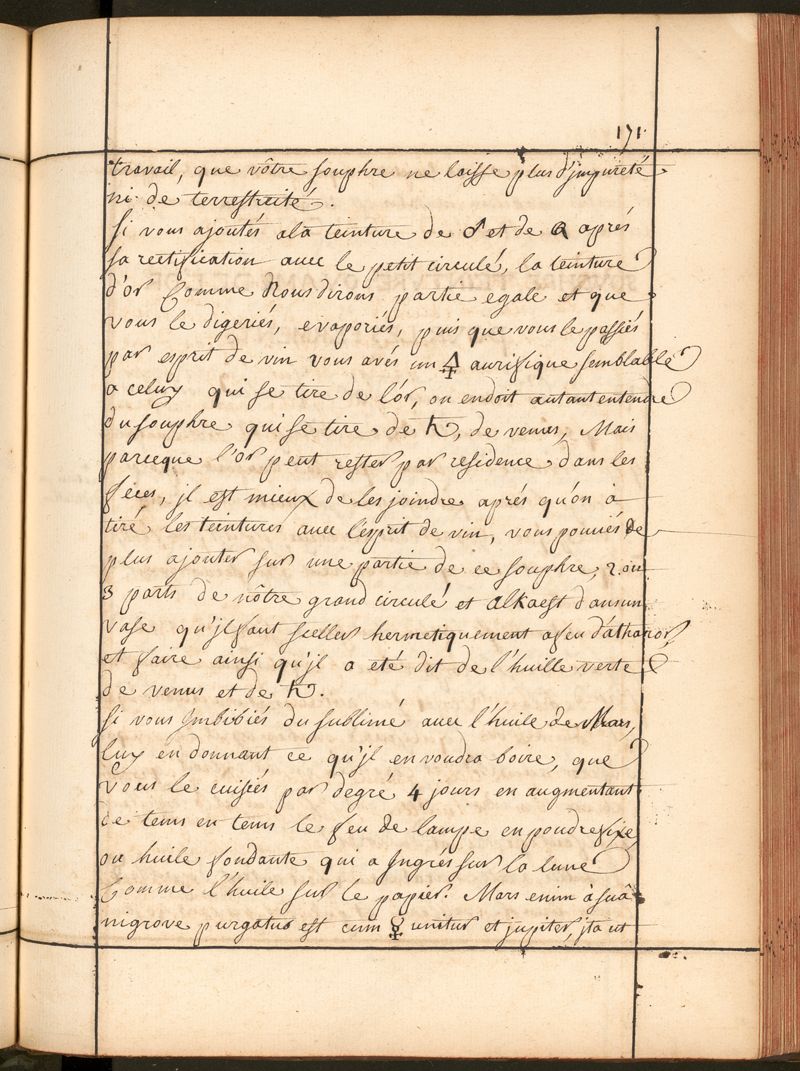 171
travail, que vôtre souphre ne laisse plus d'jmpureté
ni de terrestreité.
Si vous ajoutés ala teinture de ♂ et de ♀ aprés
sa rectification avec le petit circulé, la teinture
d'or Comme Nous dirons, partie egale et que
vous le digeriés, evaporiés, puis que vous le passiés
par esprit de vin vous avés un 🜍 aurifique semblable
a celuy qui se tire de l'or, on endoit autant entendre
du souphre qui se tire de ♄, de venus, Mais
parceque l'or peut rester par residence dans les
féces, jl est mieux de les joindre aprés qu'on à
tiré les teintures avec l'esprit de vin, vous pouvés de
plus ajouter sur une partie de ce souphre, 2. ou
3 parts de nôtre grand circulé et alkaest dans un
vase qu'jl faut sceller hermetiquement a feu d'athanor,
et faire ainsi qu'jl a eté dit de l'huille verte
de venus et de ♄.
Si vous jmbibiés du sublimé avec l'huile de Mars,
luy en donnant ce qu'jl en voudra boire, que
vous le cuisiés par degré 4 jours en augmentant
de tems en tems le feu de lampe en poudre fixe,
ou huile fondante qui a jngrés sur la lune
Comme l'huile sur le papier. Mars enim à suâ
nigrove purgatus est cum ☿ unitur et jupiter, jta ut